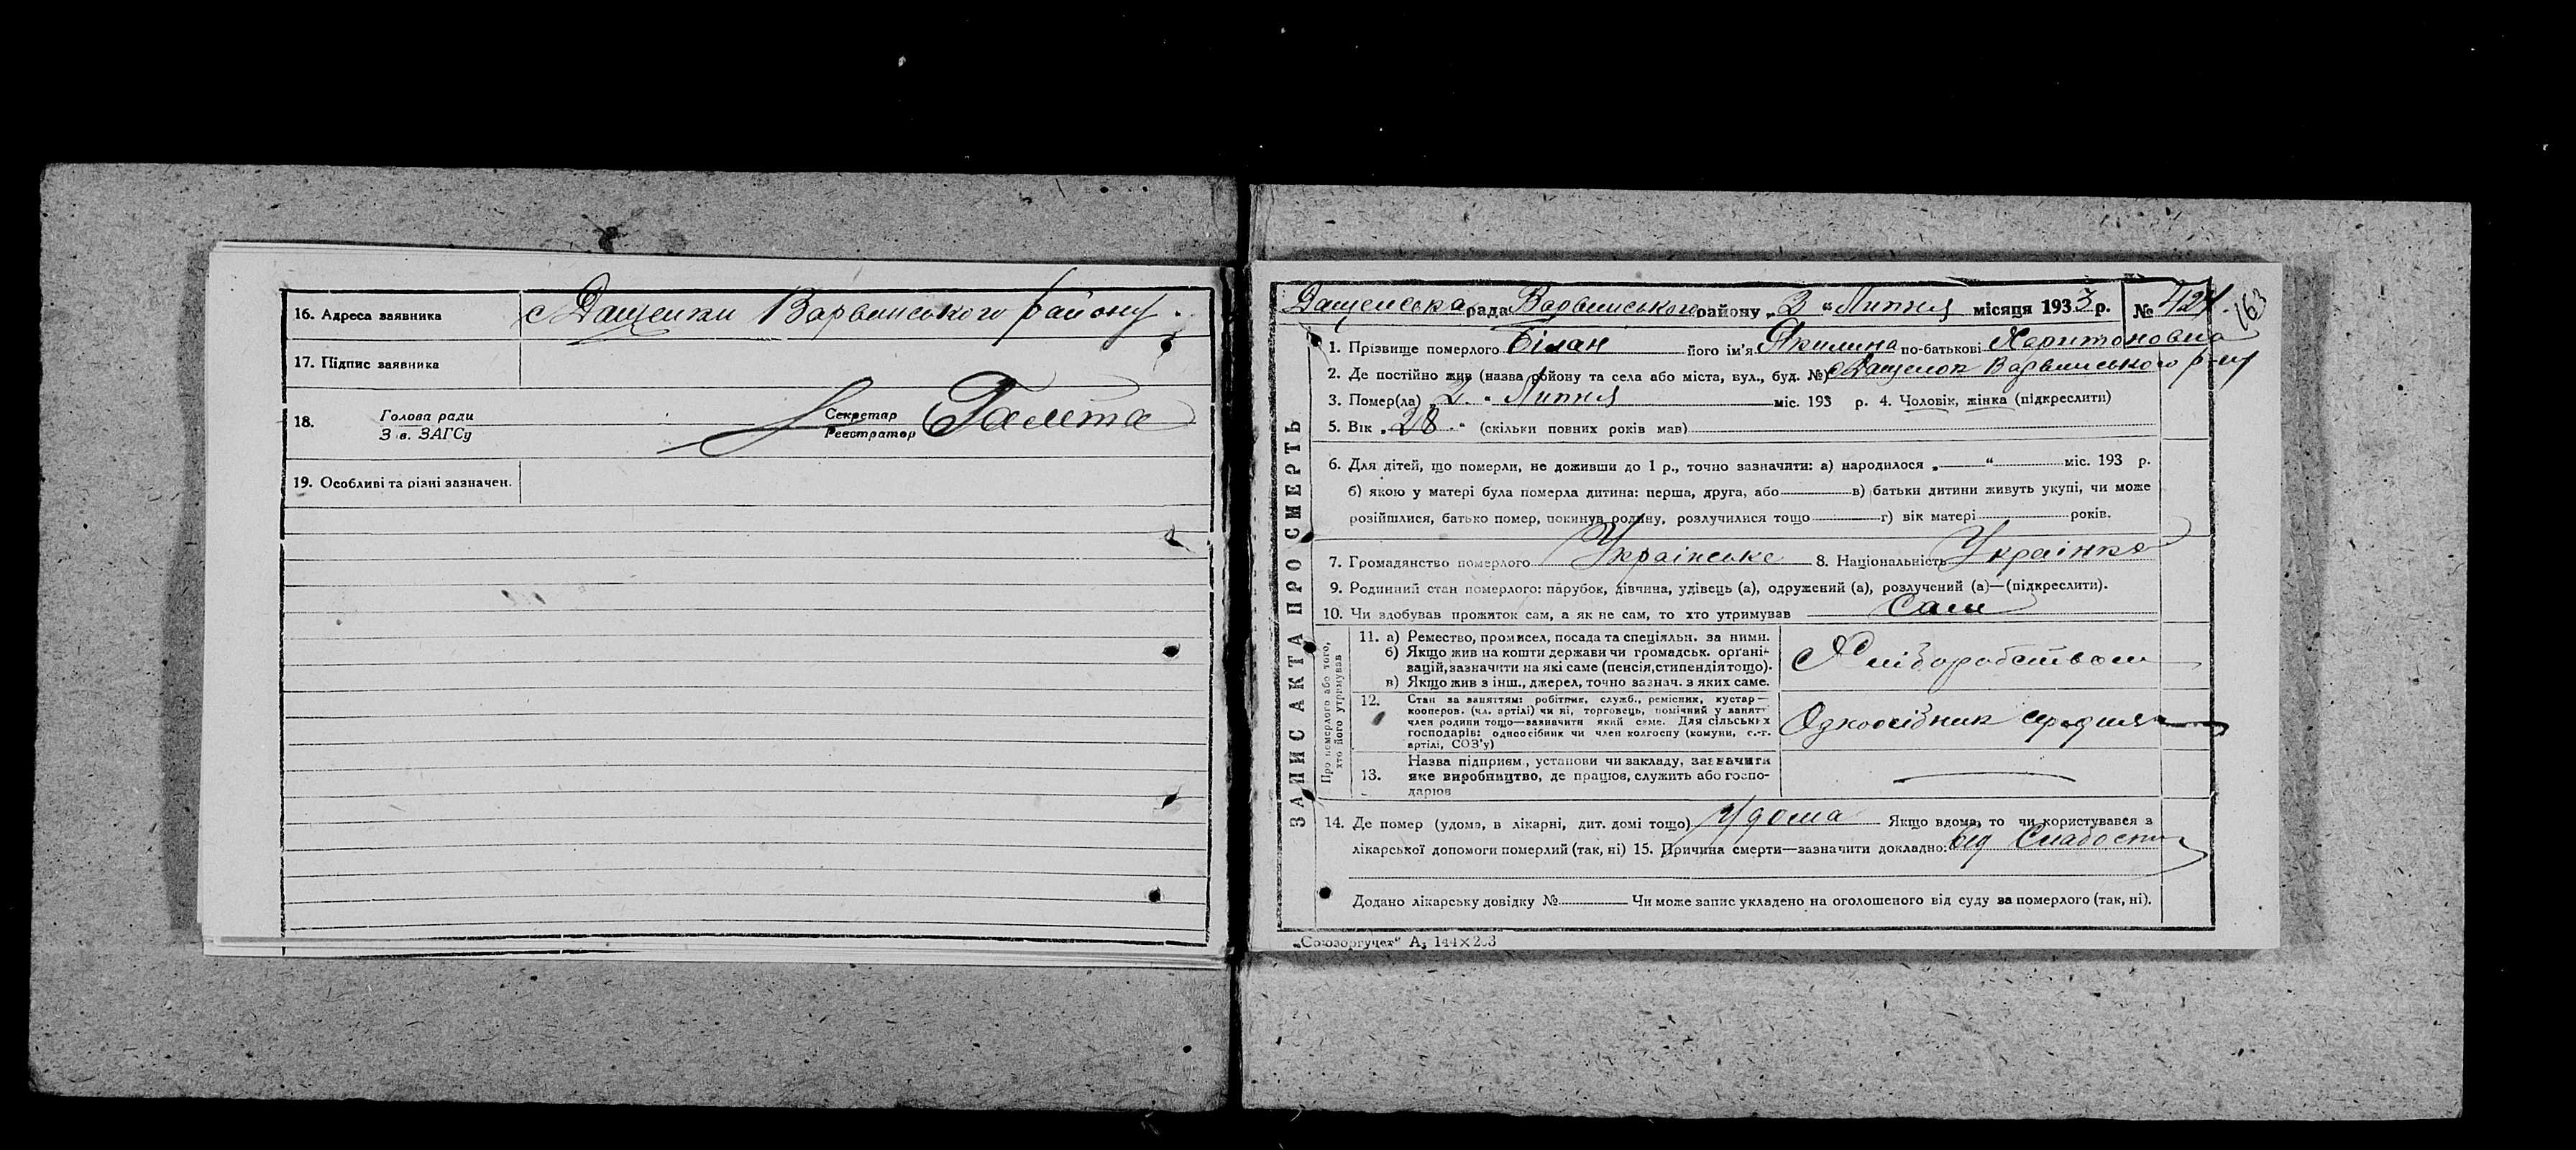 16. Адреса заявника с Дащенки Варвинського району.
17. Підпис заявника
18. Голова ради Секретар Галета
З в. ЗАГСу Реєстратор
19. Особливі та різні зазначен.
ЗАПИС АКТА ПРО СМЕРТЬ
рада Варвинського району „ 2 “ Липня місяця 1933 р. №
163
1. Прізвище померлого Білан його ім'я Якилина по-батькові Харитоновна
2. Де постійно жив (назва району та села або міста, вул., буд. №) Варвинського р-ну
3. Помер(ла) „ 2 “ Липня міс. 193 р. 4. Чоловік, жінка (підкреслити)
5. Вік „ 28 “ (скільки повних років мав)
6. Для дітей, що померли, не доживши до 1 р., точно зазначити: а) народилося „ “ міс. 193 р.
б) якою у матері була померла дитина: перша, друга, або в) батьки дитини живуть укупі, чи може
розійшлися, батько помер, покинув родину, розлучилися тощо г) вік матері років.
7. Громадянство померлого Українське 8. Національність Українка
9. Родинний стан померлого: парубок, дівчина, удівець (а), одружений (а), розлучений (а)—(підкреслити).
10. Чи здобував прожиток сам, а як не сам, то хто утримував Сам
Про померлого або того,
хто його утримував
11. а) Ремество, промисел, посада та спеціяльн. за ними.
б) Якщо жив на кошти держави чи громадськ. органі-
вацій, зазначити на які саме (пенсія, стипендія тощо).
в) Якщо жив з інш., джерел, точно зазнач. з яких саме.
Хліборобством
12. Стан за заняттям: робітник, служб., ремісник, кустар—
кооперов. (чл. артілі) чи ні, торговець, помічний у занятт
член родини тощо—зазначити який саме. Для сільських
господарів: одноосібник чи член колгоспу (комуни, с.-г.
артілі, СОЗ'у)
Одноосібник середняк
13. Назва підприєм., установи чи закладу, зазначити
яке виробництво, де працює, служить або госпо-
дарює
14. Де помер (удома, в лікарні, дит. домі тощо) Удома Якщо вдома, то чи користувався з
лікарської допомоги померлий (так, ні) 15. Причина смерти—зазначити докладно: від Слабости
Додано лікарську довідку № Чи може запис укладено на оголошеного від суду за померлого (так, ні).
„Союзоргучет“ А₅ 144×203